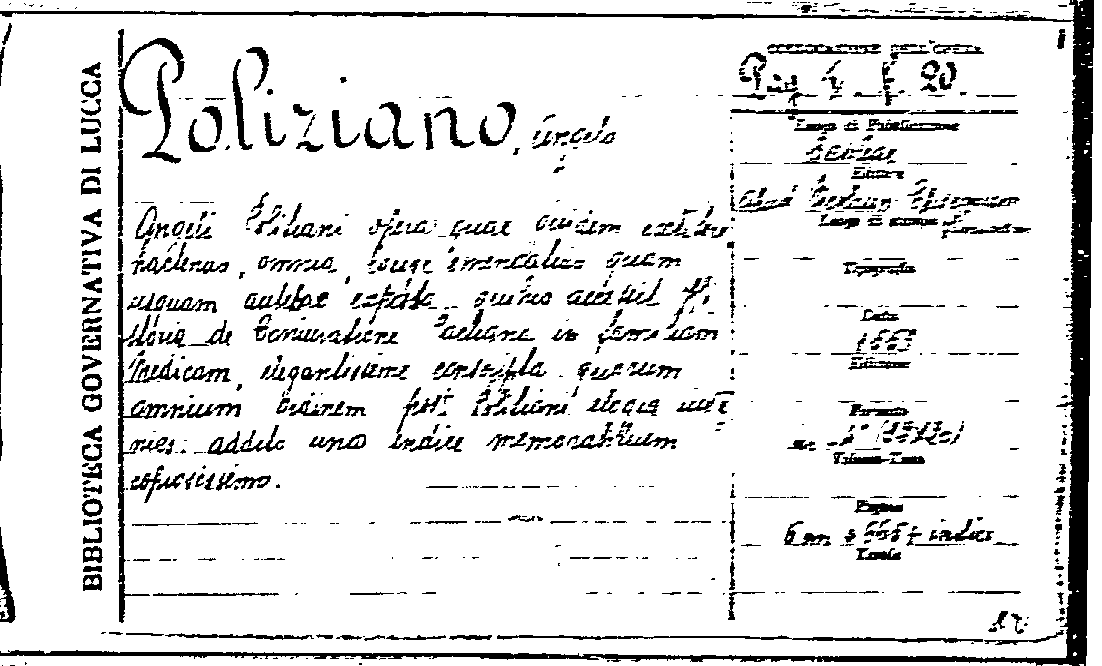 BIBLIOTECA GOVERNATIVA DI LUCCA
Poliziano, Angelo
Angeli Politiani opera quae quidem extitere
hactenus, omnia, longe emendatius quam
usquam antehac expressa quibus accessit Hi
storia de Coniuratione Pactiana in familiam
Medicam, elegantissime conscripta quorum
omnium ordinem post Politiani elogia inve
nies: addito uno indice memorabilium
copiosissimo.
COLLOCAZIONE DELL'OPERA
20
Luogo di Pubblicazione
Editore
Luogo di stampa
Tipografia
Data
Edizione
Formato
Volume-Tomo
Pagine
6 nn + + indici
Tavole